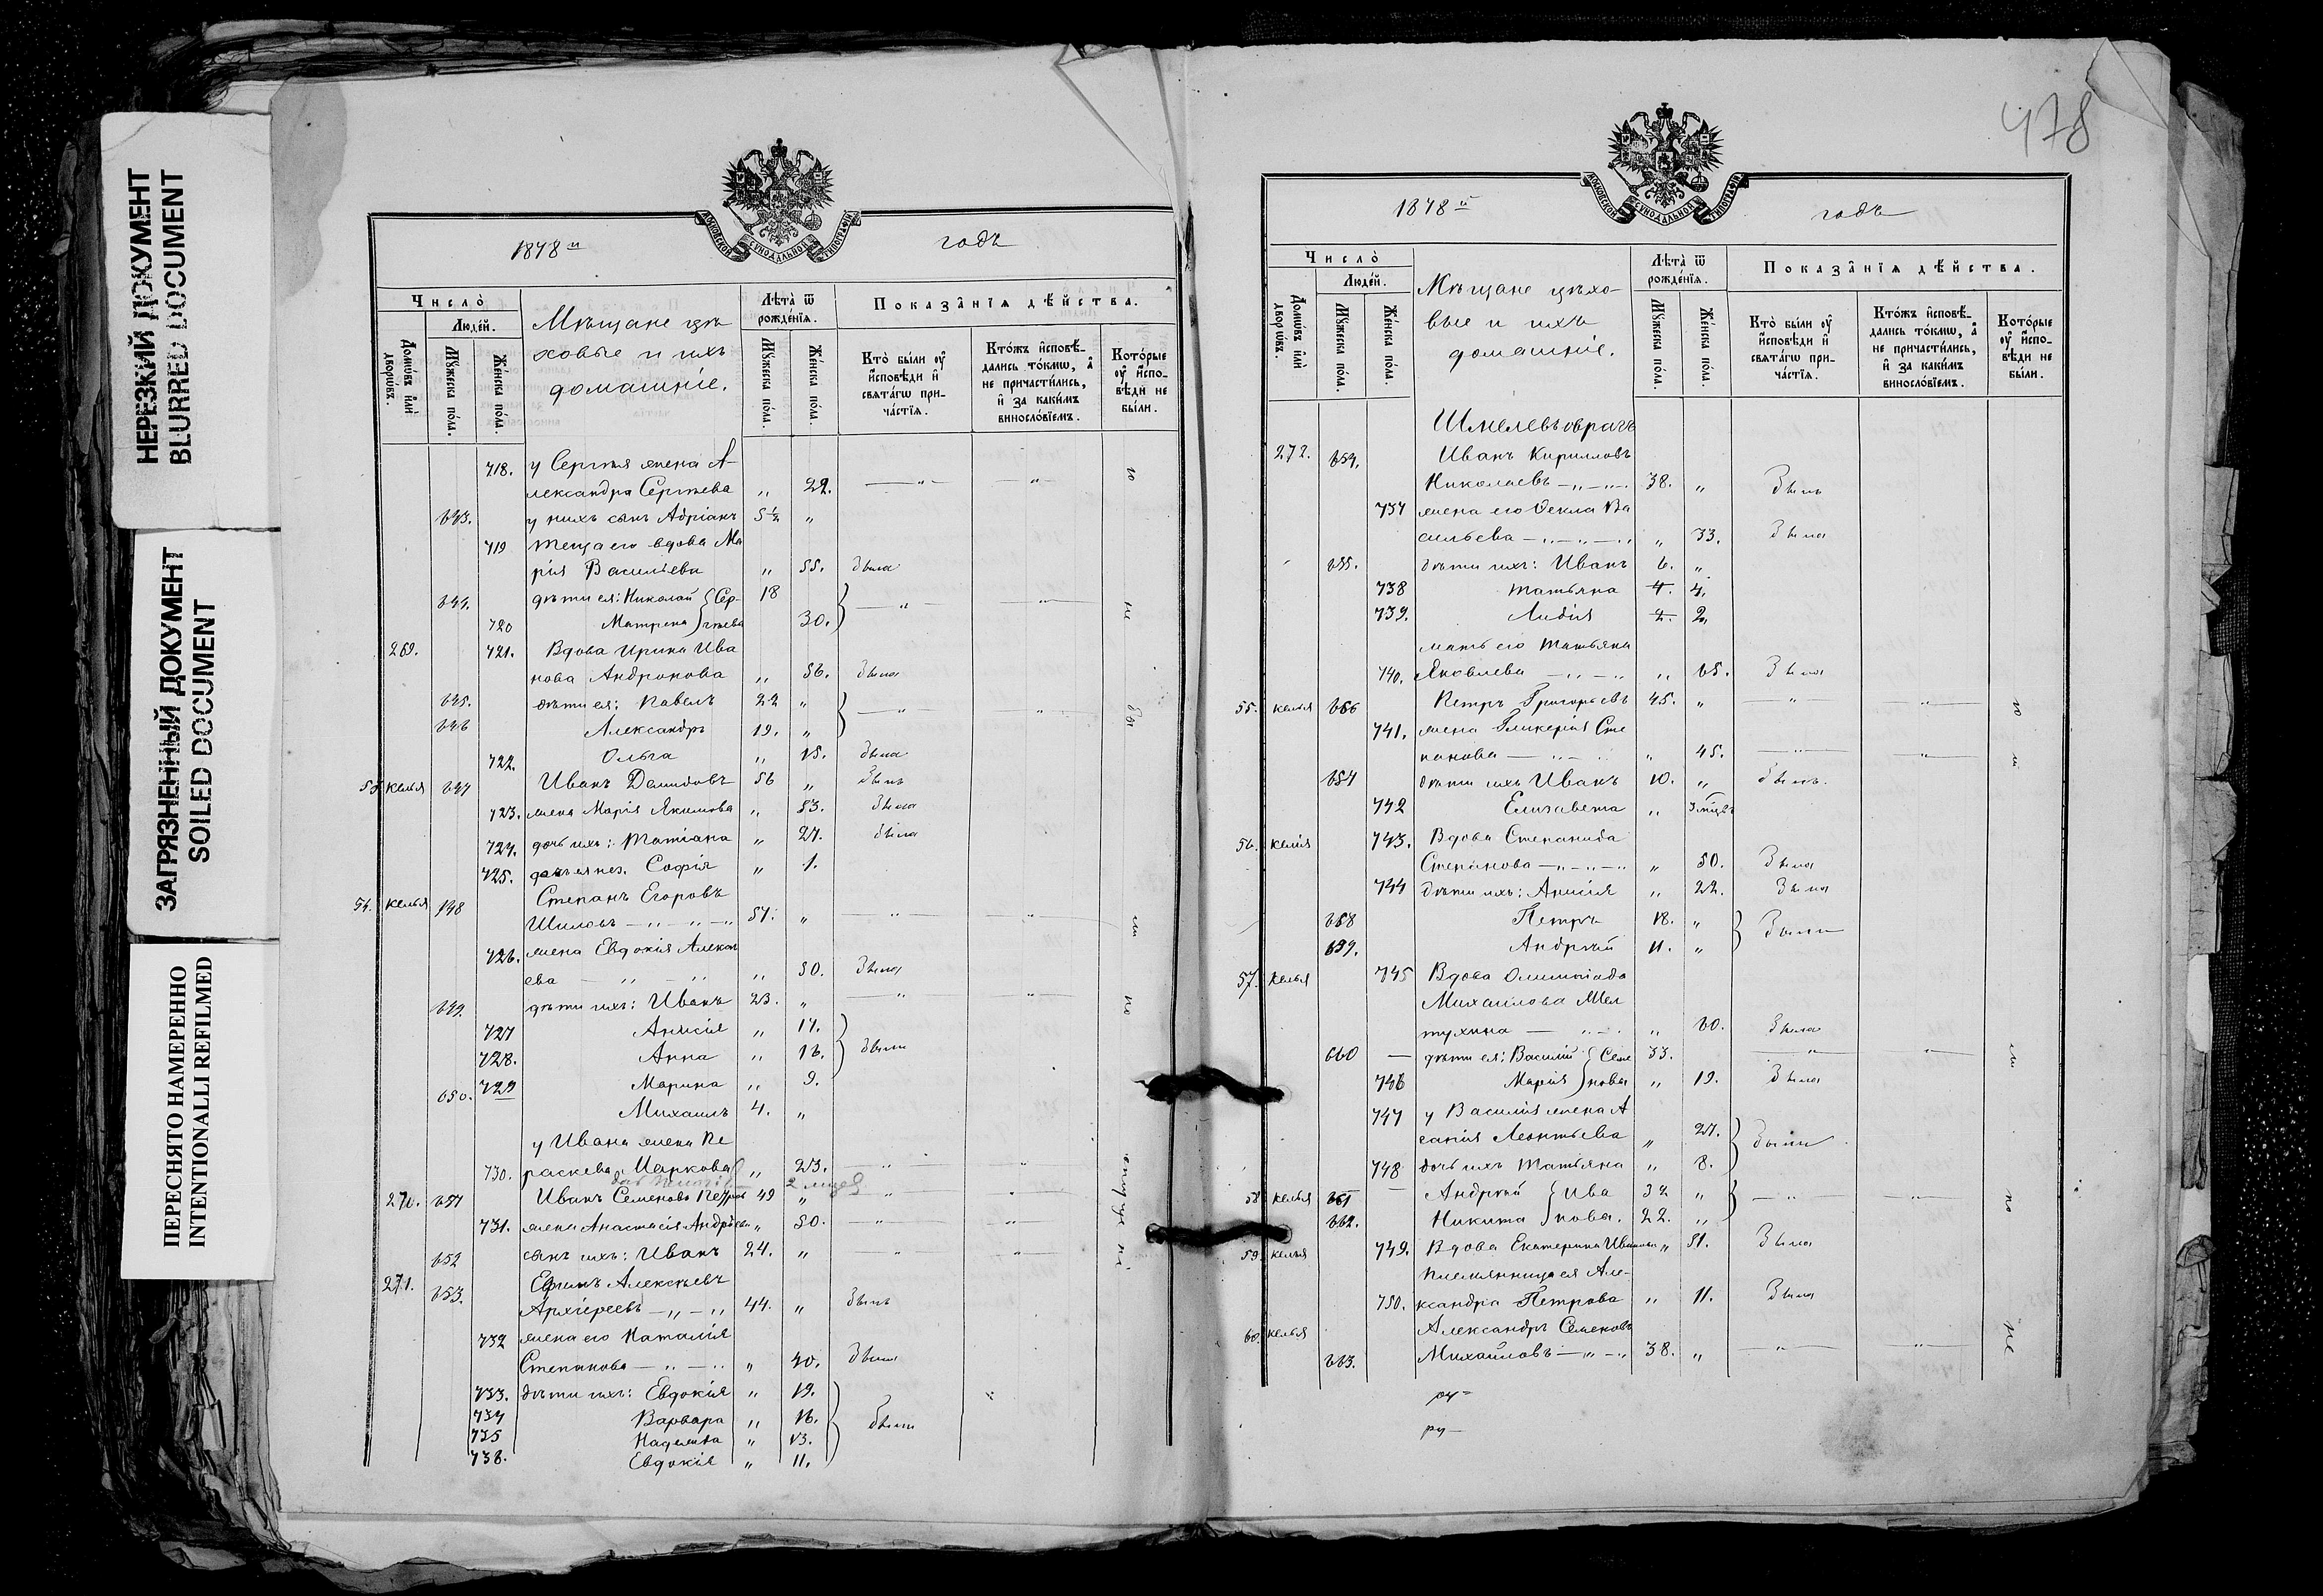 НЕРЕЗКИЙ ДОКУМЕНТ
BLURRED DOCUMENT
ЗАГРЯЗНЕННЫЙ ДОКУМЕНТ
SOILED DOCUMENT
ПЕРЕСНЯТО НАМЕРЕННО
INTENTIONALLI REFILMED
МОСКОВСКОЙ СѴНОДАЛЬНОЙ ТИПОГРАФІИ
1878й годъ
Число̀
Домѡ́въ и҆лѝ дворѡ́въ.
Люде́й.
Мꙋ́жеска по́ла.
Же́нска по́ла.
Мѣщане цѣ
ховые и ихъ
домашніе.
Лѣта̀ ѿ рожде́нїѧ.
Мꙋ́жеска по́ла.
Же́нска по́ла.
Показа̑нїѧ дѣ́йства.
Кто̀ бы́ли ᲂу҆ и҆сповѣ́ди и҆ свѧта́гѡ прича́стїѧ.
Кто́жъ и҆сповѣ́дались то́кмѡ, а҆ не причасти́лись, и҆ за каки́мъ винослові́емъ.
Кото́рые ᲂу҆ и҆сповѣ́ди не бы́ли.
718. у Сергѣя жена А-
лександра Сергѣева „ 22. — „ — — „ —
643. у нихъ сынъ Адріанъ 5½ „
719 теща его вдова Ма
рія Васильева „ 55. была
644. дѣти ея: Николай } Сер- 18
720 Матрена } гѣева 30. } — „ — — „ — не
269. 721. Вдова Ирина Ива
нова Андронова „ 56. была
645. дѣти ея: Павелъ 22 „
646 Александръ 19. „ } — „ — „ бы
722. Ольга „ 15. была
53 келья 647 Иванъ Демидовъ 56 „ былъ
723. жена Марія Якимова „ 53. была
724. дочь ихъ: Татіана „ 27. была
725. дочь ея нез. Софія „ 1.
54. келья 648 Степанъ Егоровъ
Шиловъ — „ — „ — „ 57. „ — „ — „ ли
726. жена Евдокія Алексѣ
ева — „ — „ „ 50. была
649. дѣти ихъ: Иванъ 23. „ — „ — „ по
727 Анисія „ 17.
728. Анна „ 16. } были
729 Марина „ 9.
650. Михаилъ 4. „
у Ивана жена Пе
730. раскева Маркова „ 23. — „ — „
270. 651 Иванъ Семеновъ Петровъ 49 „ — „ — „
731. жена Анастасія Андрѣева „ 50. — „ — „
652 сынъ ихъ: Иванъ 24. „ „ „
271. 653. Ефимъ Алексѣевъ
Архіереевъ — „ — „ 44. „ былъ
732 жена его Наталія
Степанова — „ — „ „ 40. была
733. дѣти ихъ: Евдокія „ 19.
734 Варвара „ 16. } были
735 Надежда „ 13.
736. Евдокія „ 11.
478
МОСКОВСКОЙ СѴНОДАЛЬНОЙ ТИПОГРАФІИ
1878й годъ
Число̀
Домѡ́въ и҆лѝ дворѡ́въ.
Люде́й.
Мꙋ́жеска по́ла.
Же́нска по́ла.
Мѣщане цѣхо-
вые и ихъ
домашніе.
Лѣта̀ ѿ рожде́нїѧ.
Мꙋ́жеска по́ла.
Же́нска по́ла.
Показа̑нїѧ дѣ́йства.
Кто̀ бы́ли ᲂу҆ и҆сповѣ́ди и҆ свѧта́гѡ прича́стїѧ.
Кто́жъ и҆сповѣ́дались то́кмѡ, а҆ не причасти́лись, и҆ за каки́мъ винослові́емъ.
Кото́рые ᲂу҆ и҆сповѣ́ди не бы́ли.
Шмелевъ оврагъ
272. 654. Иванъ Кирилловъ
Николаевъ — „ — „ — 38. „ былъ
737 жена его Фекла Ва
сильева — „ — „ — „ „ 33. была
655. дѣти ихъ: Иванъ 6. „
738 Татьяна 4.
739. Лидія 2.
мать его Татьяна
740. Яковлева — „ — „ „ 65. была
55. келья 656 Петръ Григорьевъ 45. „ — „ — — „ —
741. жена Гликерія Сте
панова — „ — „ „ 45. — „ — — „ —
657 дѣти ихъ Иванъ 10. „ былъ.
742 Елизавета „
56. келія 743. Вдова Степанида
Степанова — „ — „ — „ „ 50. была
744 дѣти ихъ: Анисія „ 22. была
658 Петръ 18. „
659. Андрей 11. „ } были
57. келья 745 Вдова Олимпіада
Михаилова Мел
тухина — „ — „ 60. была
660 — дѣти ея: Василій } Семе 33. — „ — „ — ли
746 Марія } нова „ 19. была
747 у Василія жена А
Леонтьева „ 27.
748 дочь ихъ Татьяна „ 8. } были
58 келья 661 Андрей } Ива 32 „
662. Никита } нова. 22. „ } — „ — — „ — по
59 келья 749. Вдова Екатерина Иванова „ 51. была
племянница ея Але-
750. ксандра Петрова „ 11. была
60. келья Александръ Семеновъ
663. Михайловъ — „ — „ 38. „ — „ — — „ — не